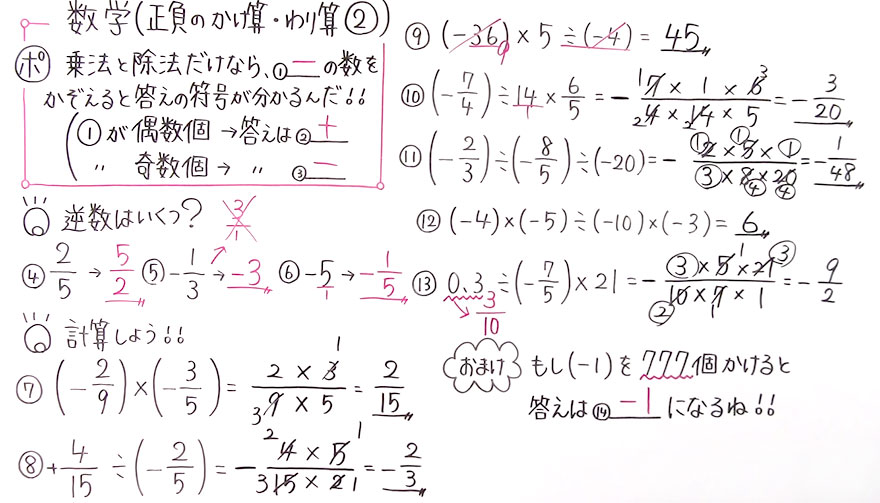 数学(正負のかけ算・わり算②)
ポ 乗法と除法だけなら、①ーの数を
かぞえると答えの符号が分かるんだ!!
(①が偶数個→答えは②+
〃 奇数個→ 〃 ③ー
逆数はいくつ? 3/1
④ 2/5 → 5/2 ⑤ -1/3 → -3 ⑥ -5/1 → -1/5
計算しよう!!
⑦ (-2/9)×(-3/5) = 2×3/9×5 = 2/15 1 3
⑧ +4/15 ÷(-2/5) = -4×5/15×2 = -2/3 2 1 3 1
⑨ (-36)×5÷(-4) = 45 9
⑩ (-7/4)÷14×6/5 = -7×1×6/4×14×5 = -3/20 1 1 3 2 2
⑪ (-2/3)÷(-8/5)÷(-20) = -2×5×①/③×8×20 = -1/48 ① ① ④ ④
⑫ (-4)×(-5)÷(-10)×(-3) = 6
⑬ 0.3÷(-7/5)×21 = -③×5×21/10×7×1 = -9/2 1 ③ ② 1
→ 3/10
おまけ もし(-1)を777個かけると
答えは⑭ -1 になるね!!